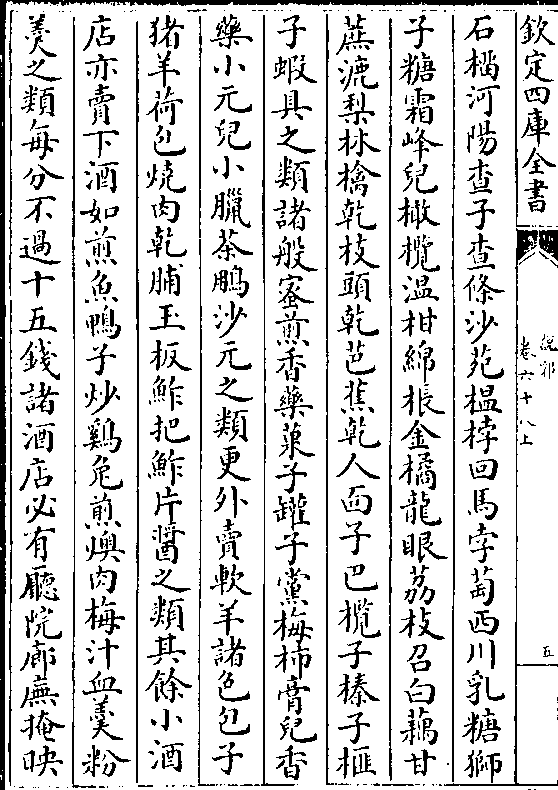 欽定四庫全書
說郛
卷六十八上
五
石榴河陽查子查條沙苑榅桲回馬孛萄西川乳糖獅
子糖霜峰兒橄欖溫柑綿棖金橘龍眼荔枝召白藕甘
蔗漉梨林檎乾枝頭乾芭蕉乾人面子巴欖子榛子榧
子蝦具之類諸般蜜煎香藥菓子罐子黨梅柿膏兒香
藥小元兒小臘茶鵬沙元之類更外賣軟羊諸色包子
猪羊荷包燒肉乾脯玉板鮓把鮓片醬之類其餘小酒
店亦賣下酒如煎魚鴨子炒鷄兎煎燠肉梅汁血羮粉
羮之類每分不過十五錢諸酒店必有廳院廊廡掩映